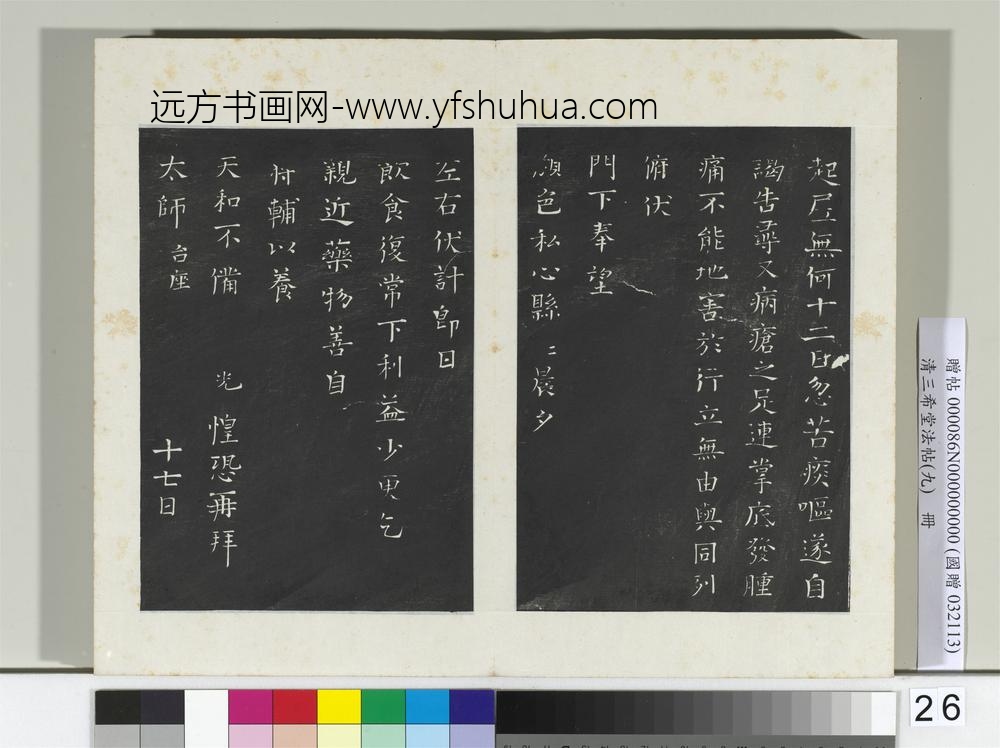 远方书画网-www.yfshuhua.com
起居無何十二日忽苦痰嘔遂自
謁告尋又病瘡之足連掌底發腫
痛不能地害於行立無由與同列
俯伏
門下奉望
顏色私心縣〻晨夕
左右伏計即日
飲食復常下利益少更乞
親近藥物善自
將輔以養
天和不備 光 惶恐再拜
太師 台座 十七日
贈帖 000086N000000000 (國贈 032113)
清三希堂法帖(九) 冊
26